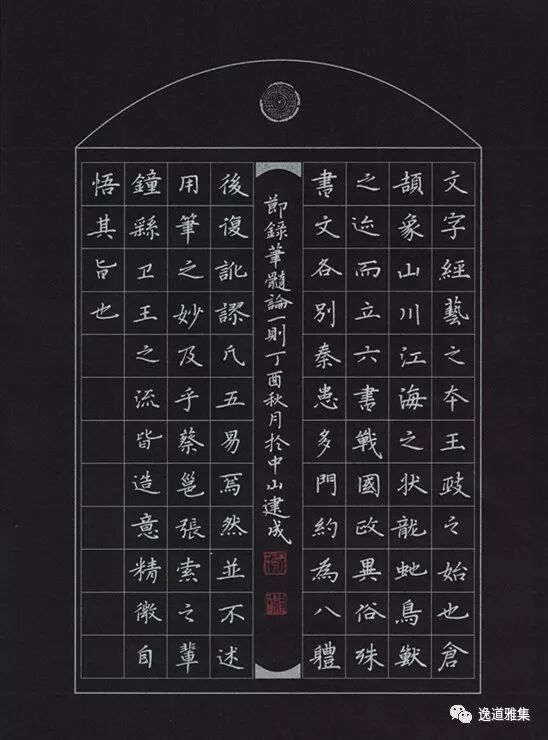 文字經藝之夲王政之始也倉
頡象山川江海之狀龍虵鳥獸
之迹而立六書戰國政異俗殊
書文各別秦患多門約為八體
後復訛謬凡五易焉然並不述
用筆之妙及乎蔡邕張索之輩
鐘繇卫王之流皆造意精微自
悟其旨也
節錄筆髓論一則丁酉秋月於中山建成
逸道雅集